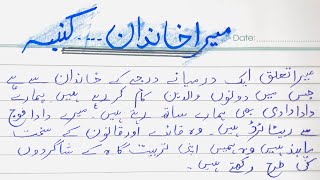 میرا خاندان .... کنبہ
Date:
میرا تعلق ایک درمیانے درجے کے خاندان سے ہے
جس میں دونوں والدین کام کر رہے ہیں ہمارے
دادا دادی بھی ہمارے ساتھ رہتے ہیں میرے دادا فوج
سے ریٹائرڈ ہیں۔ وہ قاعدے اور قانون کے سخت
پابند ہیں وہ ہمیں اپنی تربیت گاہ کے شاگردوں
کی طرح رکھتے ہیں۔